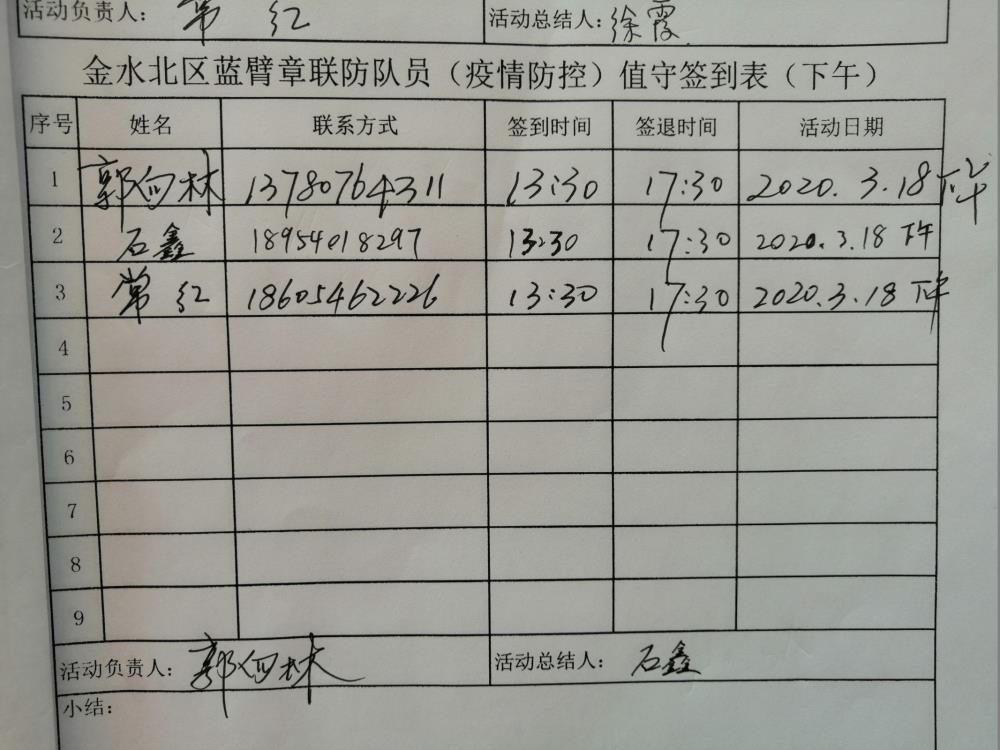 活动负责人: 常红 活动总结人: 徐霞
金水北区蓝臂章联防队员（疫情防控）值守签到表（下午）
序号 姓名 联系方式 签到时间 签退时间 活动日期
1 郭向林 13780764311 13:30 17:30 2020.3.18下午
2 石鑫 18954018297 13:30 17:30 2020.3.18下午
3 常红 18605462226 13:30 17:30 2020.3.18下午
4
5
6
7
8
9
活动负责人: 郭向林 活动总结人: 石鑫
小结: